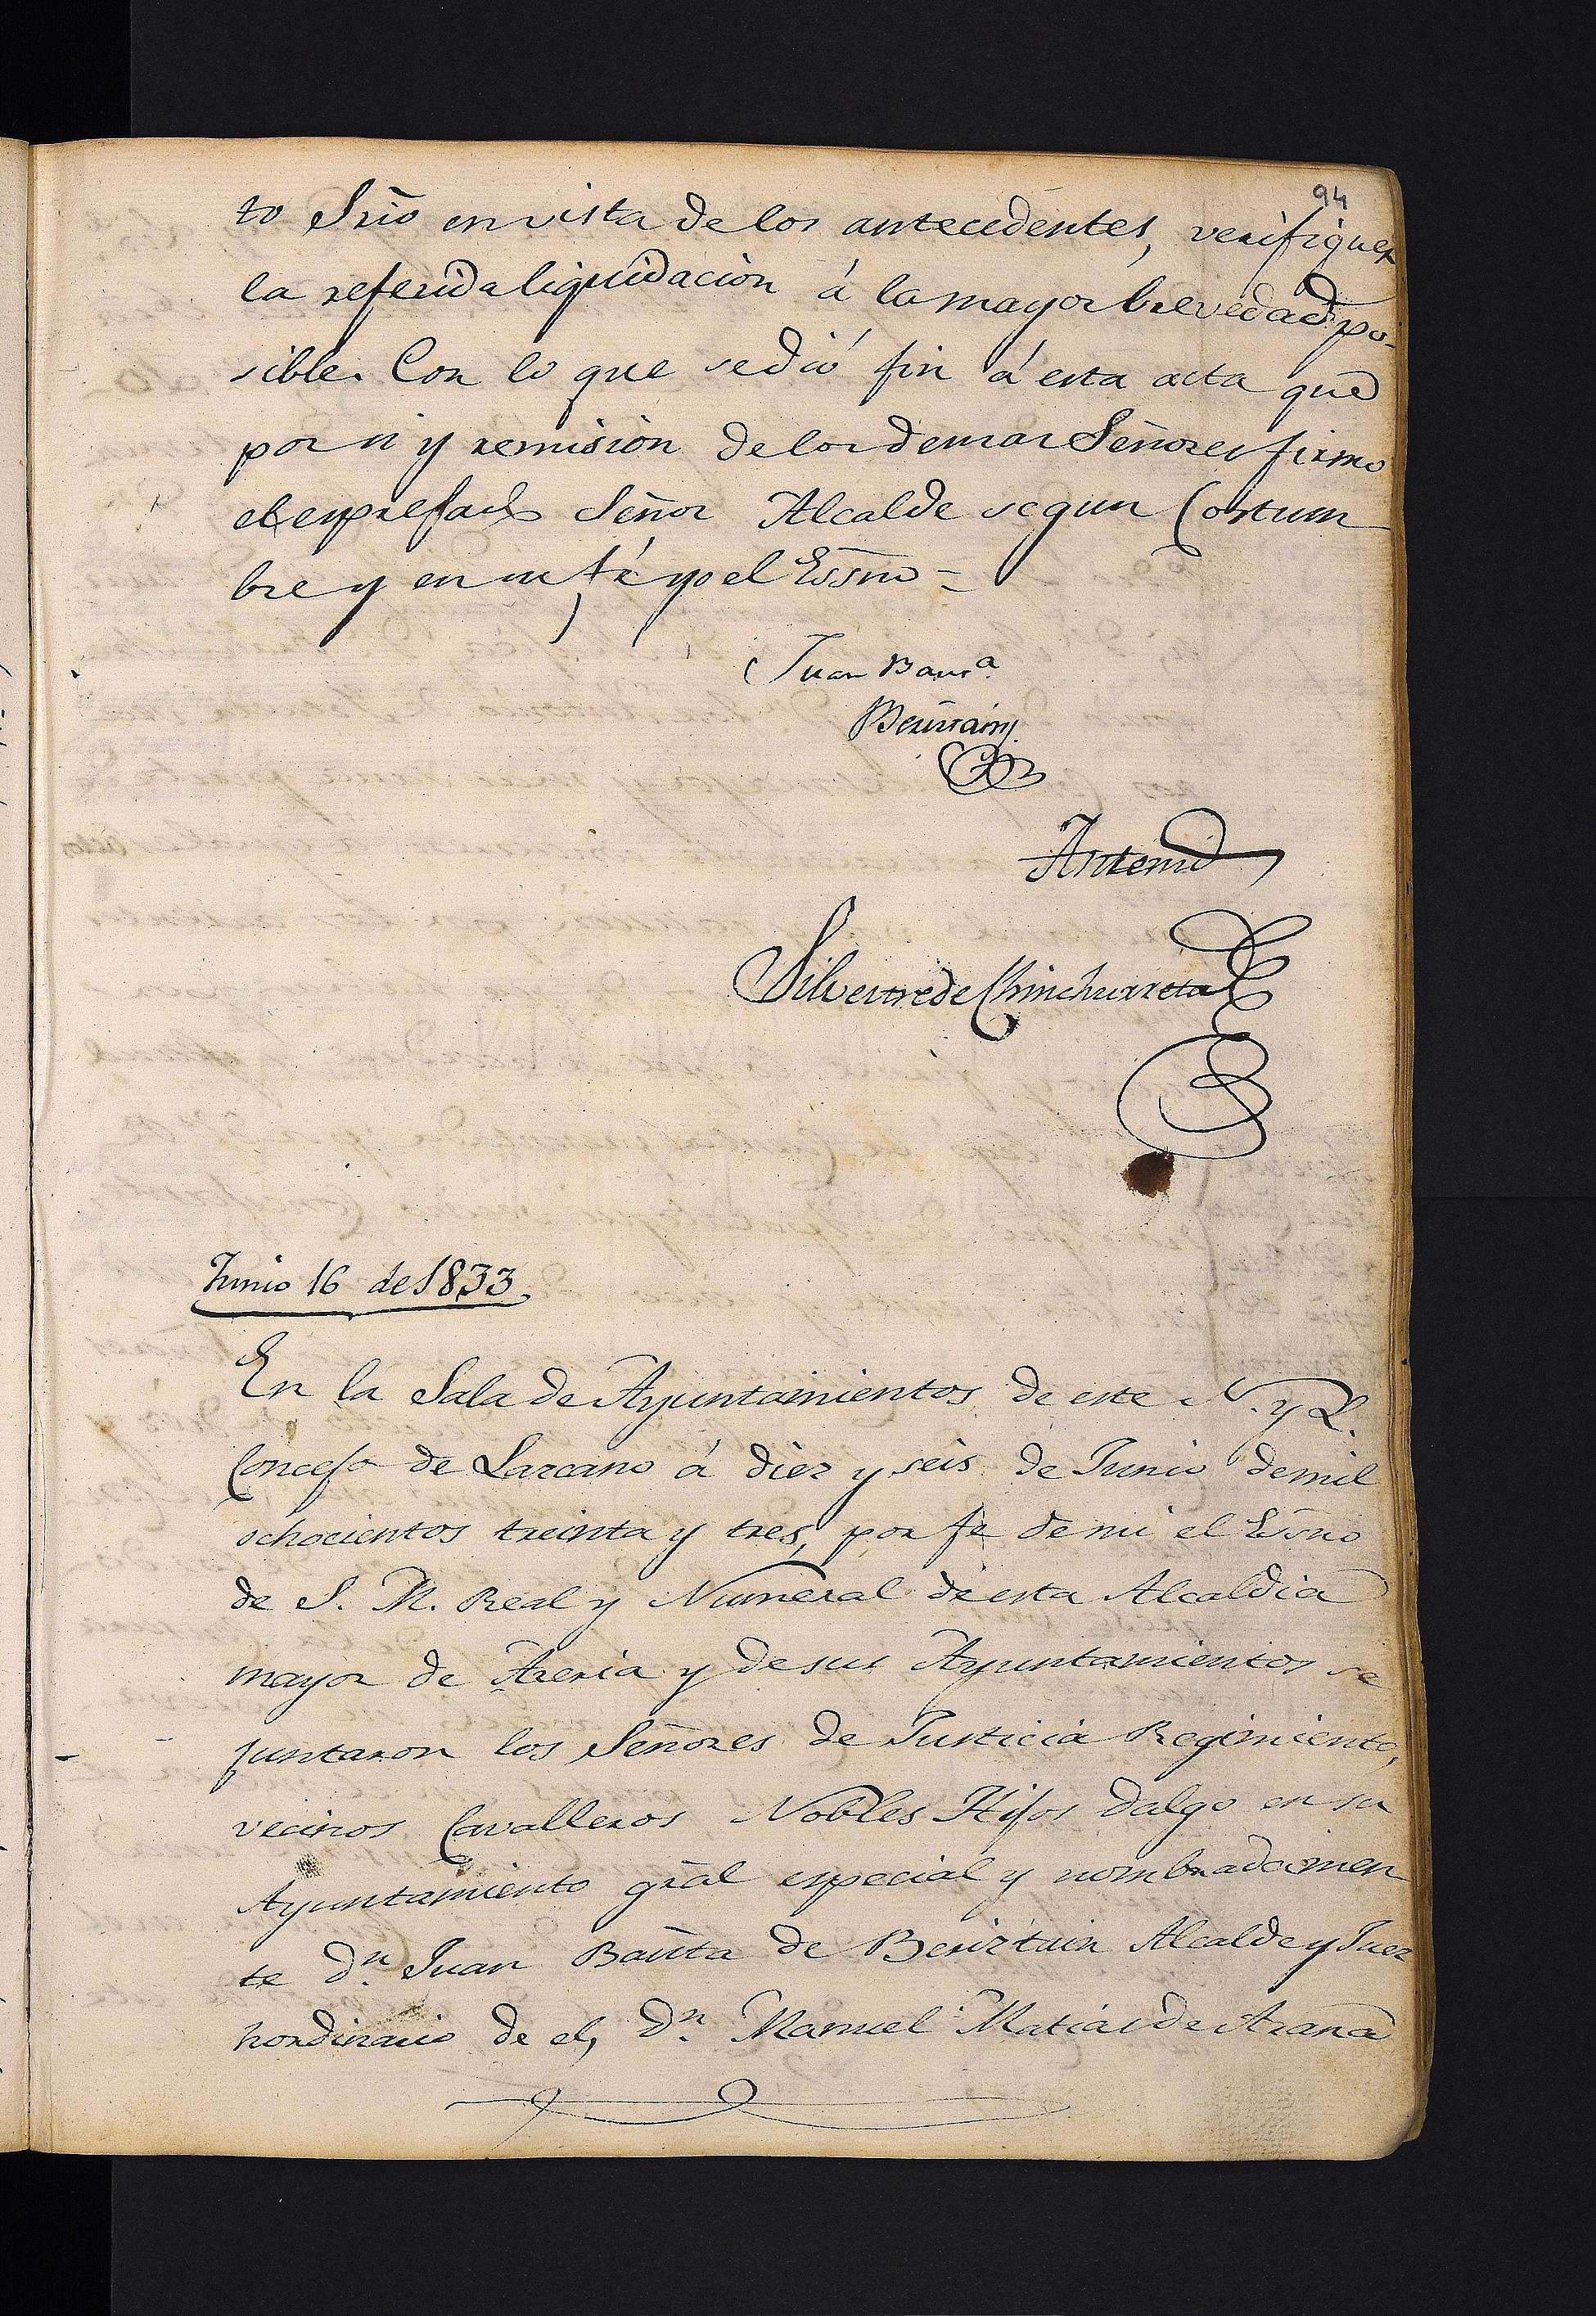 94
to Srio en vista de los antecedentes, verifiquen
la referida liquidacion á la mayor brevedad po-
sible. Con lo que se dió fin á esta acta que
por si y remision de los demas Señores firmo
el expresado Señor Alcalde segun Costum-
bre y en fé yo el Essno =
Juan Baut.ª
Beristain
Antemi
Silvestre de Chinchurreta
Junio 16 de 1833.
En la Sala de Ayuntamientos de este N. y L.
Concejo de Lazcano á diez y seis de Junio de mil
ochocientos treinta y tres, por fe de mi el Essno
de S. M. Real y Numeral de esta Alcaldia
mayor de Areria y de sus Ayuntamientos se
juntaron los Señores de Justicia Regimiento,
vecinos Cavalleros Nobles Hijos dalgo en su
Ayuntamiento gral especial y nombradamen
te Dn. Juan Bauta de Beriztain Alcalde y Juez
hordinario de el, Dn. Manuel Matias de Arana